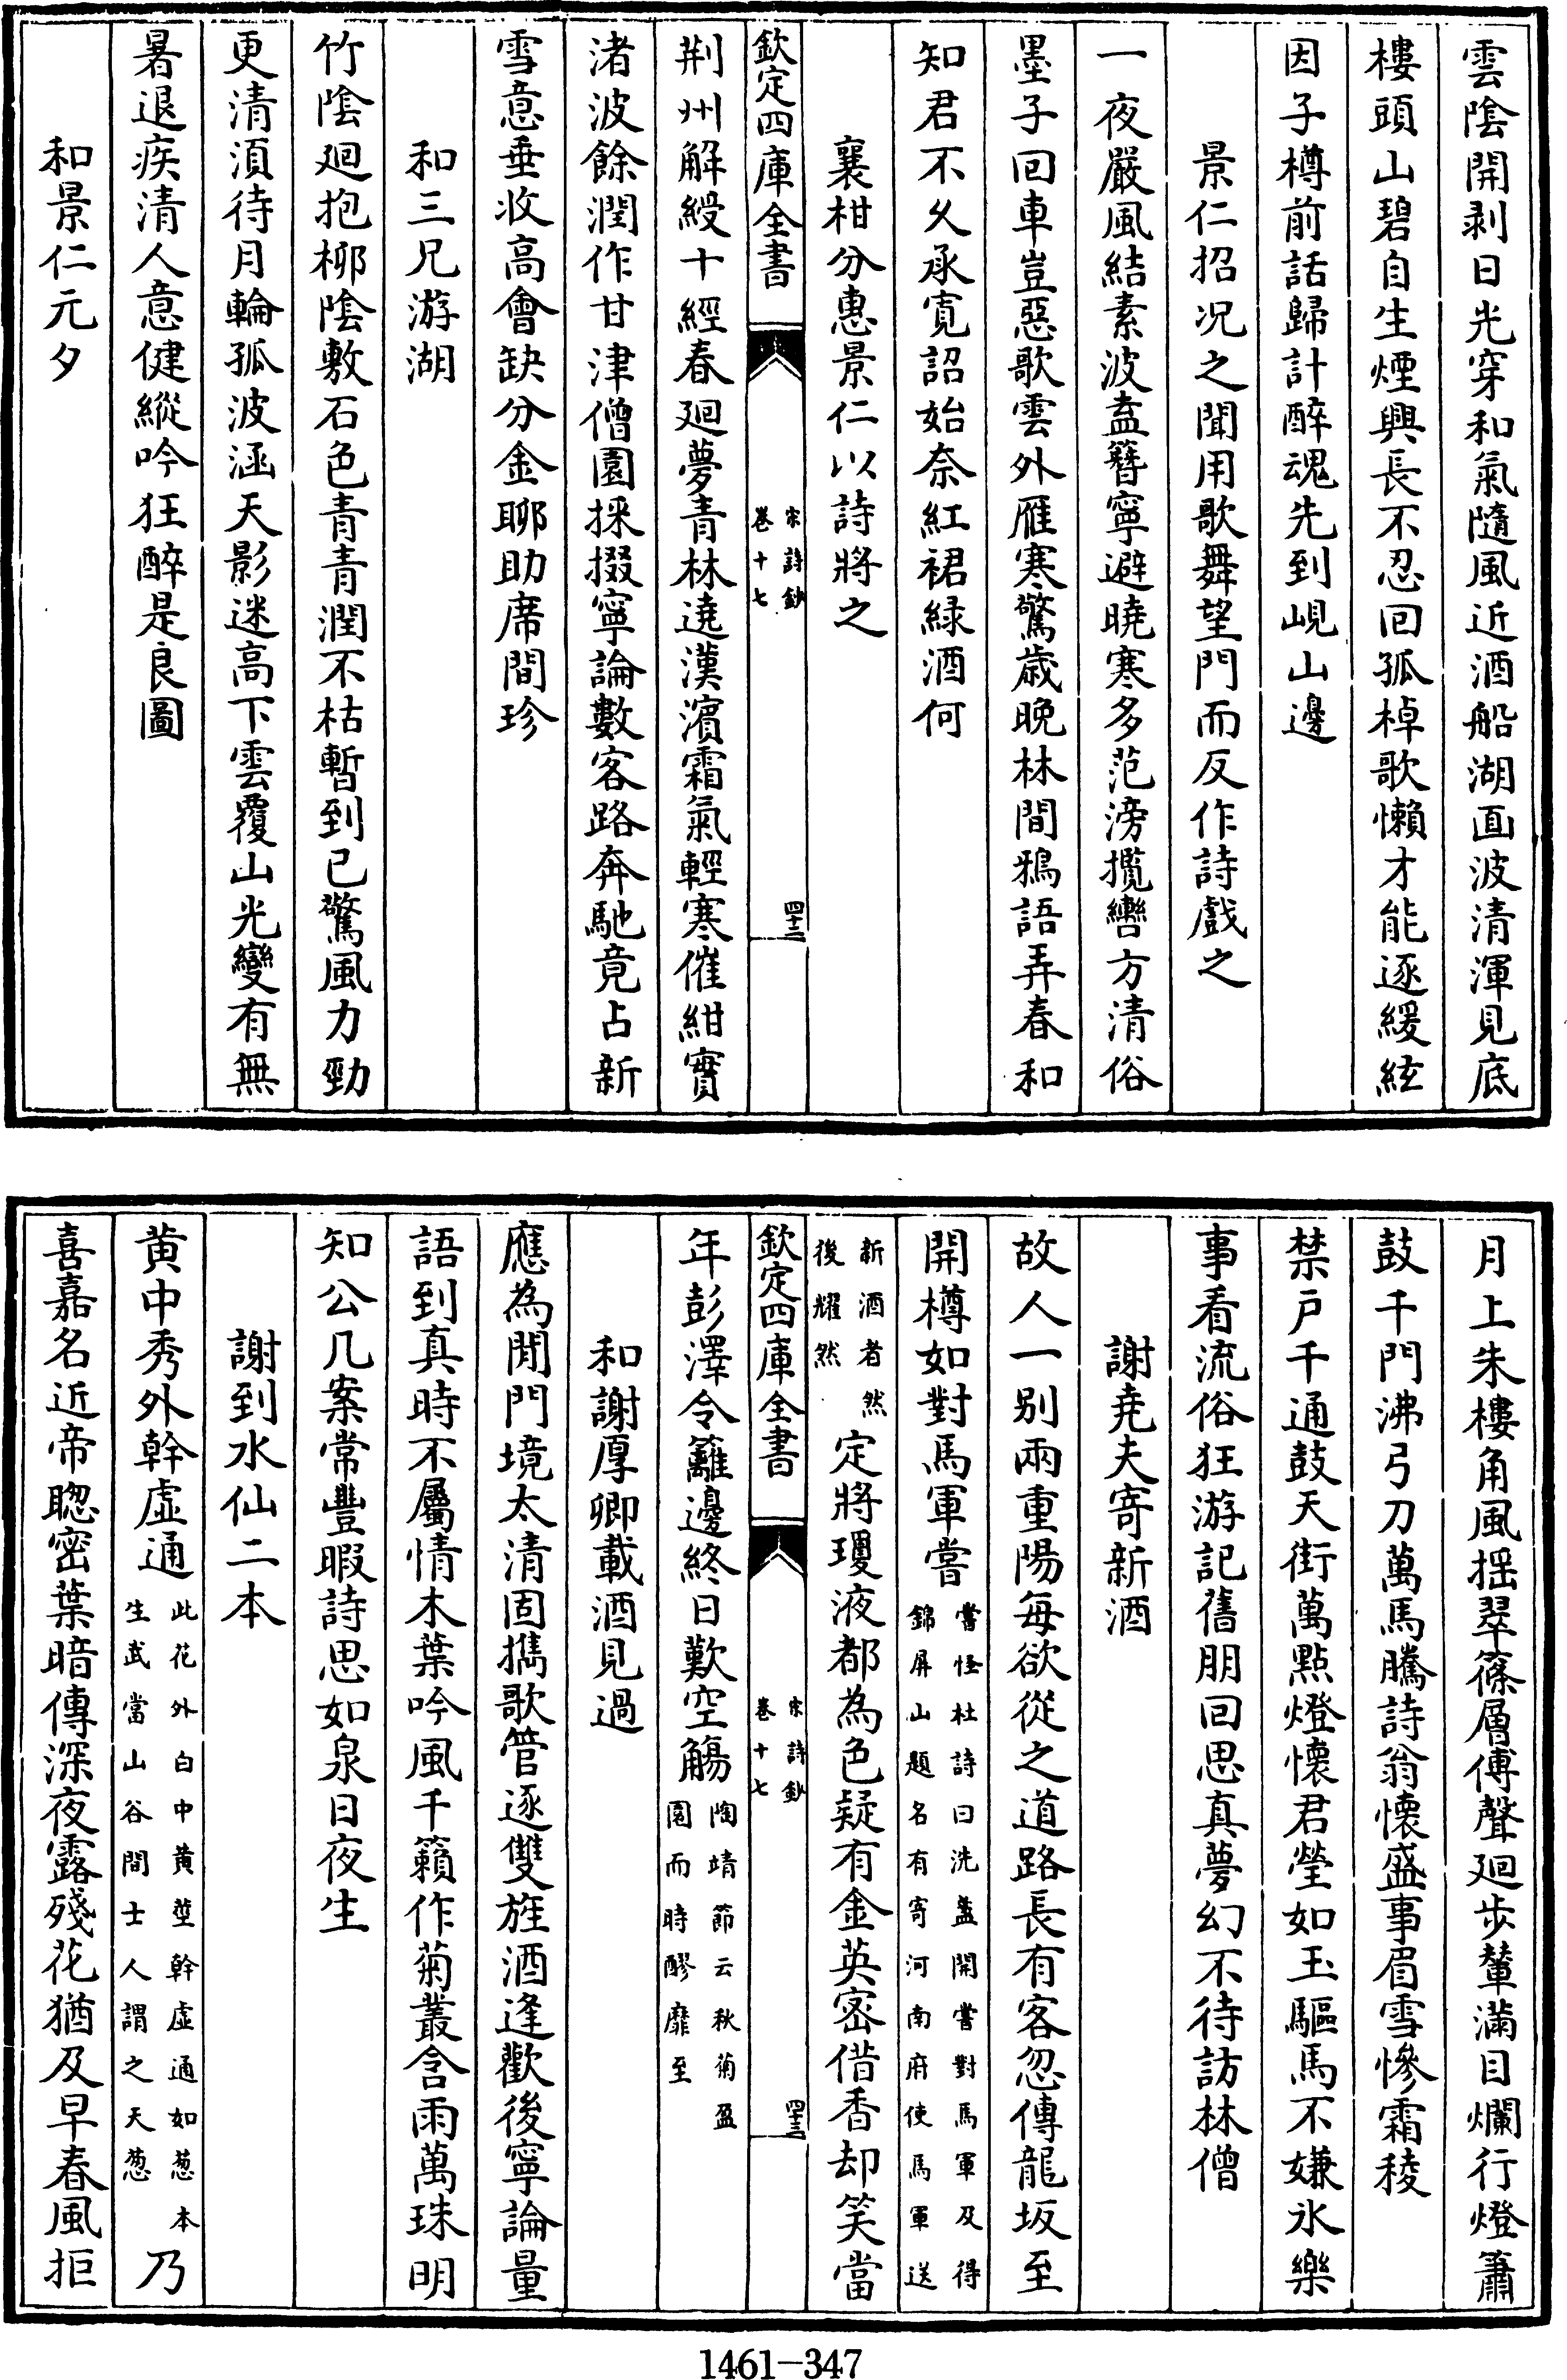 雲陰開剥日光穿和氣隨風近酒船湖面波清渾見底
樓頭山碧自生煙興長不忍回孤棹歌懶才能逐緩絃
因子樽前話歸計醉魂先到峴山邊
景仁招况之聞用歌舞望門而反作詩戲之
一夜嚴風結素波盍簪寧避曉寒多范滂攬轡方清俗
墨子回車豈惡歌雲外雁寒驚歲晚林間鴉語弄春和
知君不久承寛詔始奈紅裙緑酒何
襄柑分惠景仁以詩將之
欽定四庫全書
宋詩鈔
卷十七
四十二
荆州解綬十經春廻夢青林遶漢濱霜氣輕寒催紺實
渚波餘潤作甘津僧園採掇寧論數客路奔馳竟占新
雪意垂收高會缺分金聊助席間珍
和三兄游湖
竹陰廻抱柳陰敷石色青青潤不枯暫到已驚風力勁
更清須待月輪孤波涵天影迷高下雲覆山光變有無
暑退疾清人意健縱吟狂醉是良圖
和景仁元夕
月上朱樓角風揺翠篠層傅聲廻步輦滿目爛行燈簫
鼓千門沸弓刀萬馬騰詩翁懷盛事眉雪慘霜稜
禁户千通鼓天街萬點燈懷君瑩如玉驅馬不嫌氷樂
事看流俗狂游記舊朋回思真夢幻不待訪林僧
謝堯夫寄新酒
故人一别兩重陽每欲從之道路長有客忽傳龍坂至
開樽如對馬軍嘗
嘗怪杜詩曰洗盞開嘗對馬軍及得
錦屏山題名有寄河南府使馬軍送
新酒者然
後耀然
定將瓊液都為色疑有金英密借香却笑當
欽定四庫全書
宋詩鈔
卷十七
四十三
年彭澤令籬邊終日歎空觴
陶靖節云秋菊盈
園而時醪靡至
和謝厚卿載酒見過
應為閒門境太清固攜歌管逐雙旌酒逢歡後寧論量
語到真時不屬情木葉吟風千籟作菊叢含雨萬珠明
知公几案常豐暇詩思如泉日夜生
謝到水仙二本
黄中秀外幹虚通
此花外白中黄莖幹虚通如葱本
生武當山谷間士人謂之天葱
乃
喜嘉名近帝聰密葉暗傳深夜露殘花猶及早春風拒
1461—347